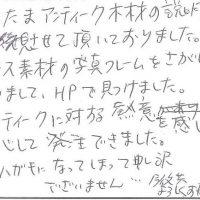 たまアンティーク木材の説明
魅せて頂いておりました。
ス素材の写真フレームをさがし
まして、HPで見つけました。
ティークに対する感意を感じ
心して発注できました。
ハガキになってしまって申し訳
ございません…